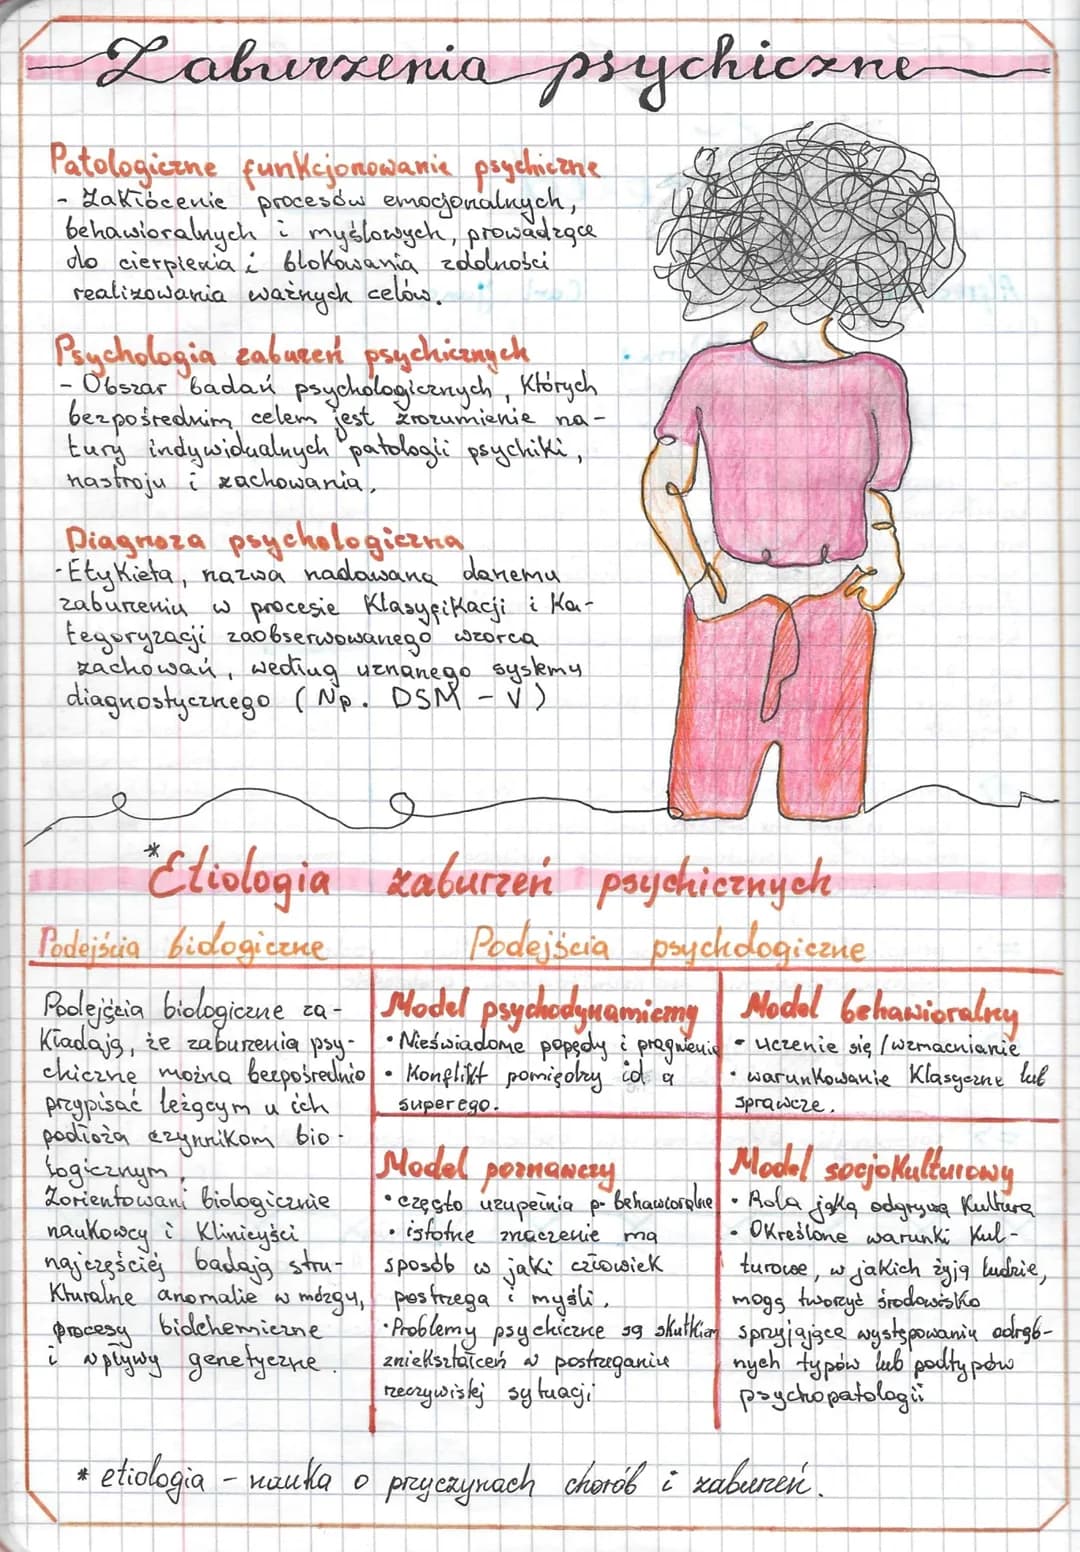 Zaburzenia psychiczne
Patologiczne funkcjonowanie psychiczne
- Zakłócenie procesów emocjonalnych,
behawioralnych i myślowych, prowadzące
do cierpienia i blokowania zdolności
realizowania ważnych celów.
Psychologia zaburzeń psychicznych
- Obszar badań psychologicznych, których
bezpośrednim celem jest zrozumienie na-
tury indywidualnych patologii psychiki,
nastroju i zachowania.
Diagnoza psychologiczna
- Etykieta, nazwa nadawana danemu
zaburzeniu w procesie klasyfikacji i ka-
tegoryzacji zaobserwowanego wzorca
zachowań, według uznanego systemu
diagnostycznego (Np. DSM - V)
*Etiologia zaburzeń psychicznych
Podejścia biologiczne
Podejścia biologiczne za-
kładają, że zaburzenia psy-
chiczne można bezpośrednio
przypisać leżącym u ich
podłoża czynnikom bio-
logicznym.
Zorientowani biologicznie
naukowcy i klinicyści
najczęściej badają stru-
kturalne anomalie w mózgu,
procesy biochemiczne
i wpływy genetyczne.
Podejścia psychologiczne
Model psychodynamiczny
• Nieświadome popędy i pragnienia
• Konflikt pomiędzy id a
superego.
Model behawioralny
- uczenie się / wzmacnianie
• warunkowanie klasyczne lub
sprawcze.
Model poznawczy
• często uzupełnia p- behawioralne
• istotne znaczenie ma
sposób w jaki człowiek
postrzega i myśli.
• Problemy psychiczne są skutkiem
zniekształceń w postrzeganiu
rzeczywistej sytuacji
Model socjokulturowy
• Rola jaką odgrywa kultura
• Określone warunki kul-
turowe, w jakich żyją ludzie,
mogą tworzyć środowisko
sprzyjające występowaniu odręb-
nych typów lub podtypów
psychopatologii
* etiologia - nauka o przyczynach chorób i zaburzeń.